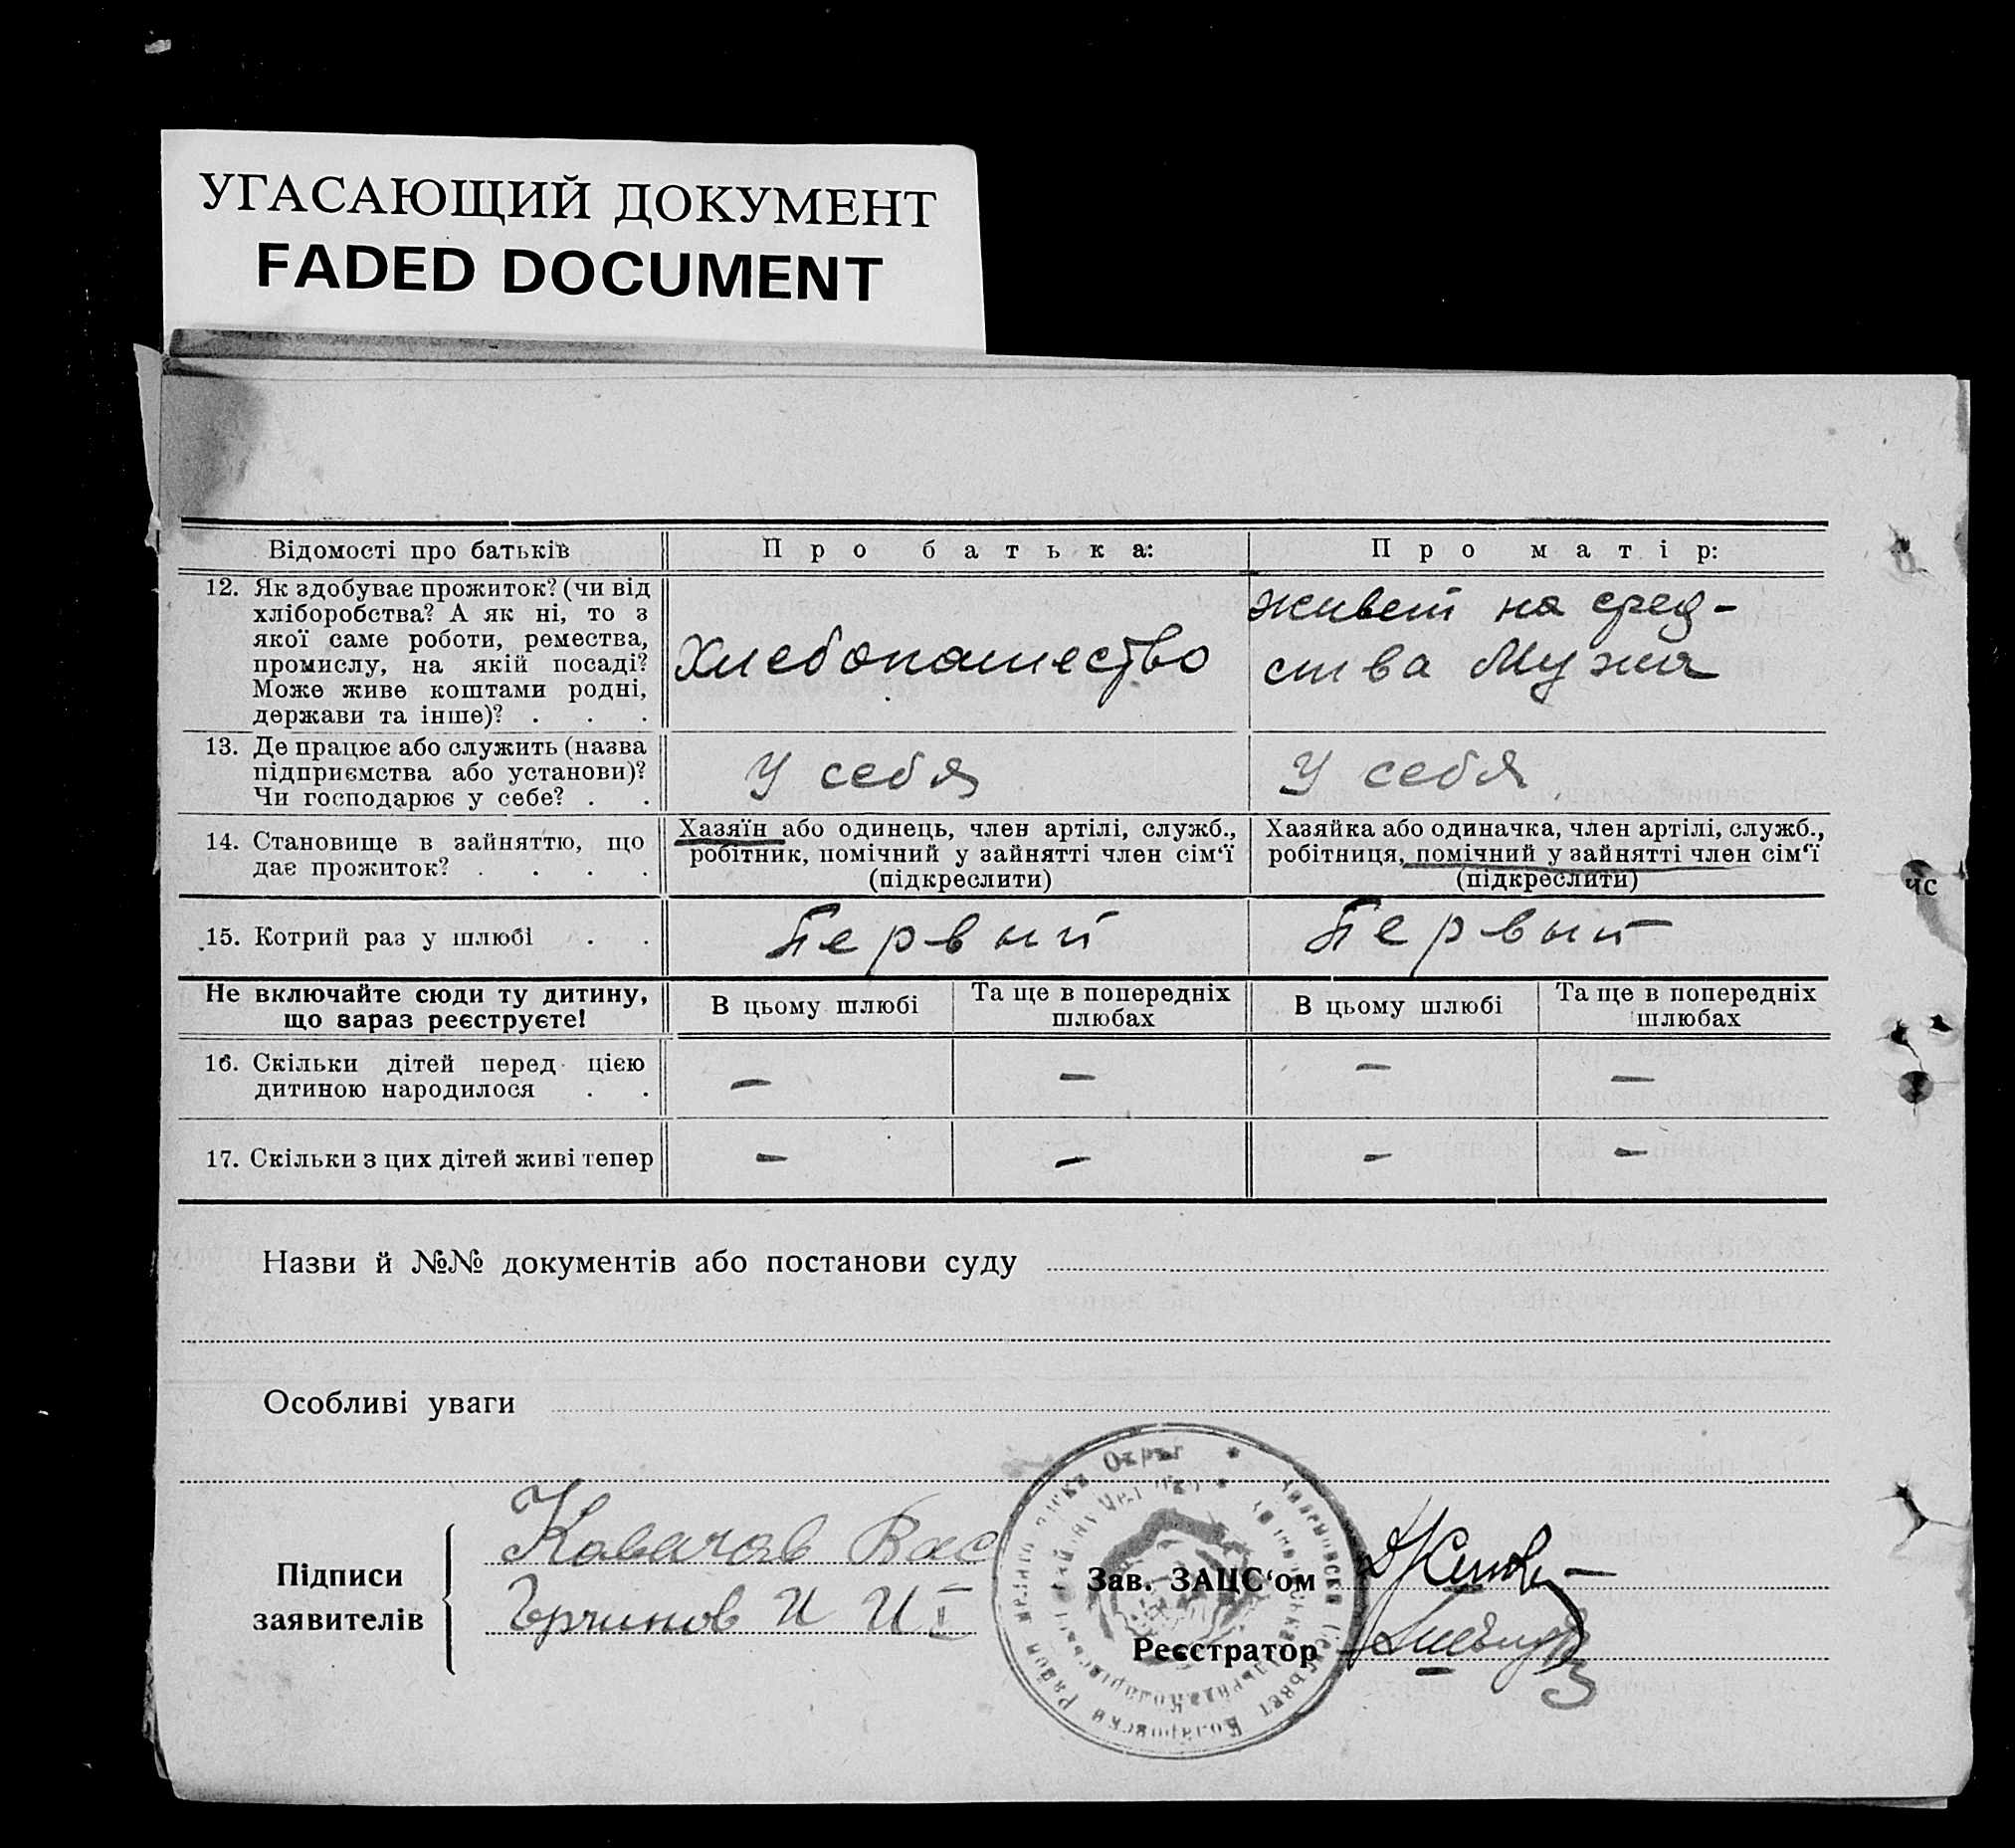 УГАСАЮЩИЙ ДОКУМЕНТ
FADED DOCUMENT
Відомості про батьків
Про батька:
Про матір:
12. Як здобуває прожиток? (чи від
хліборобства? А як ні, то з
якої саме роботи, ремества,
промислу, на якій посаді?
Може живе коштами родні,
держави та інше)? . . .
Хлебопашество
живет на сред-
ства Мужа
13. Де працює або служить (назва
підприємства або установи)?
Чи господарює у себе? . .
У себя
У себя
14. Становище в зайняттю, що
дає прожиток? . . . .
Хазяїн або одинець, член артілі, служб.,
робітник, помічний у зайнятті член сім'ї
(підкреслити)
Хазяйка або одиначка, член артілі, служб.,
робітниця, помічний у зайнятті член сім'ї
(підкреслити)
15. Котрий раз у шлюбі . .
Первый
Первый
Не включайте сюди ту дитину,
що зараз реєструєте!
В цьому шлюбі
Та ще в попередніх
шлюбах
В цьому шлюбі
Та ще в попередніх
шлюбах
16. Скільки дітей перед цією
дитиною народилося . .
—
—
—
—
17. Скільки з цих дітей живі тепер
—
—
—
—
Назви й №№ документів або постанови суду
Особливі уваги
Підписи
заявителів
Ковачов Вас
И И
Зав. ЗАЦС'ом
Реєстратор
Округ
Коларовски Район
чс